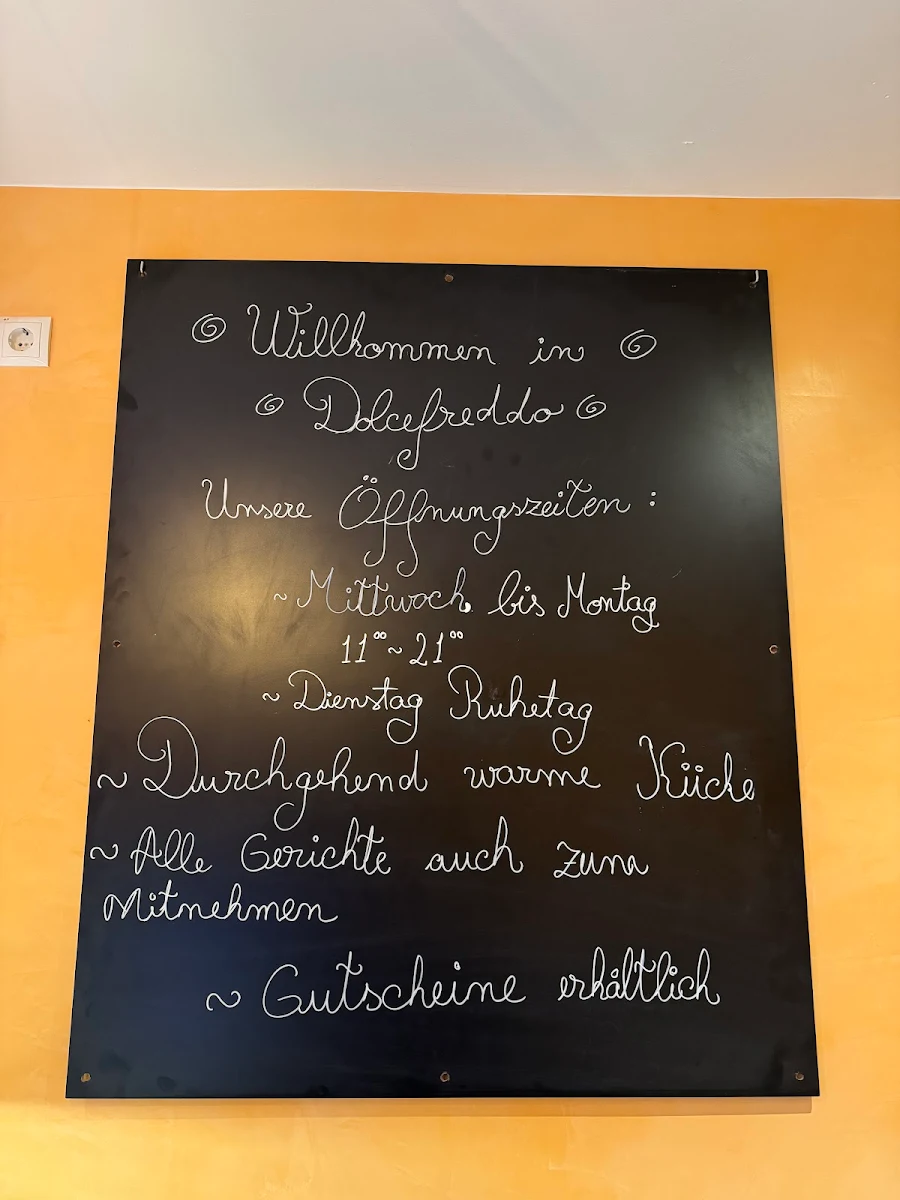 Willkommen in
Dolcefreddo
Unsere Öffnungszeiten :
~ Mittwoch bis Montag
11°° ~ 21°°
~ Dienstag Ruhetag
~ Durchgehend warme Küche
~ Alle Gerichte auch zum
Mitnehmen
~ Gutscheine erhältlich